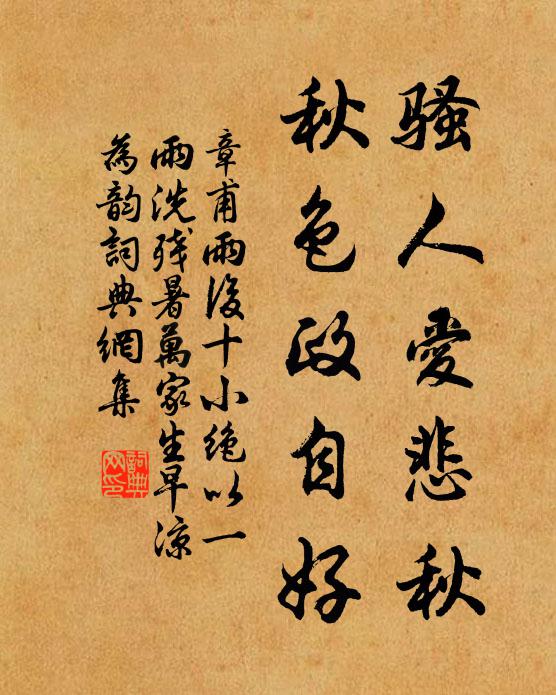 骚人爱悲秋
秋色政自好
章甫雨后十小绝以一
雨洗残暑万家生早凉
为韵词典网集
词典网印